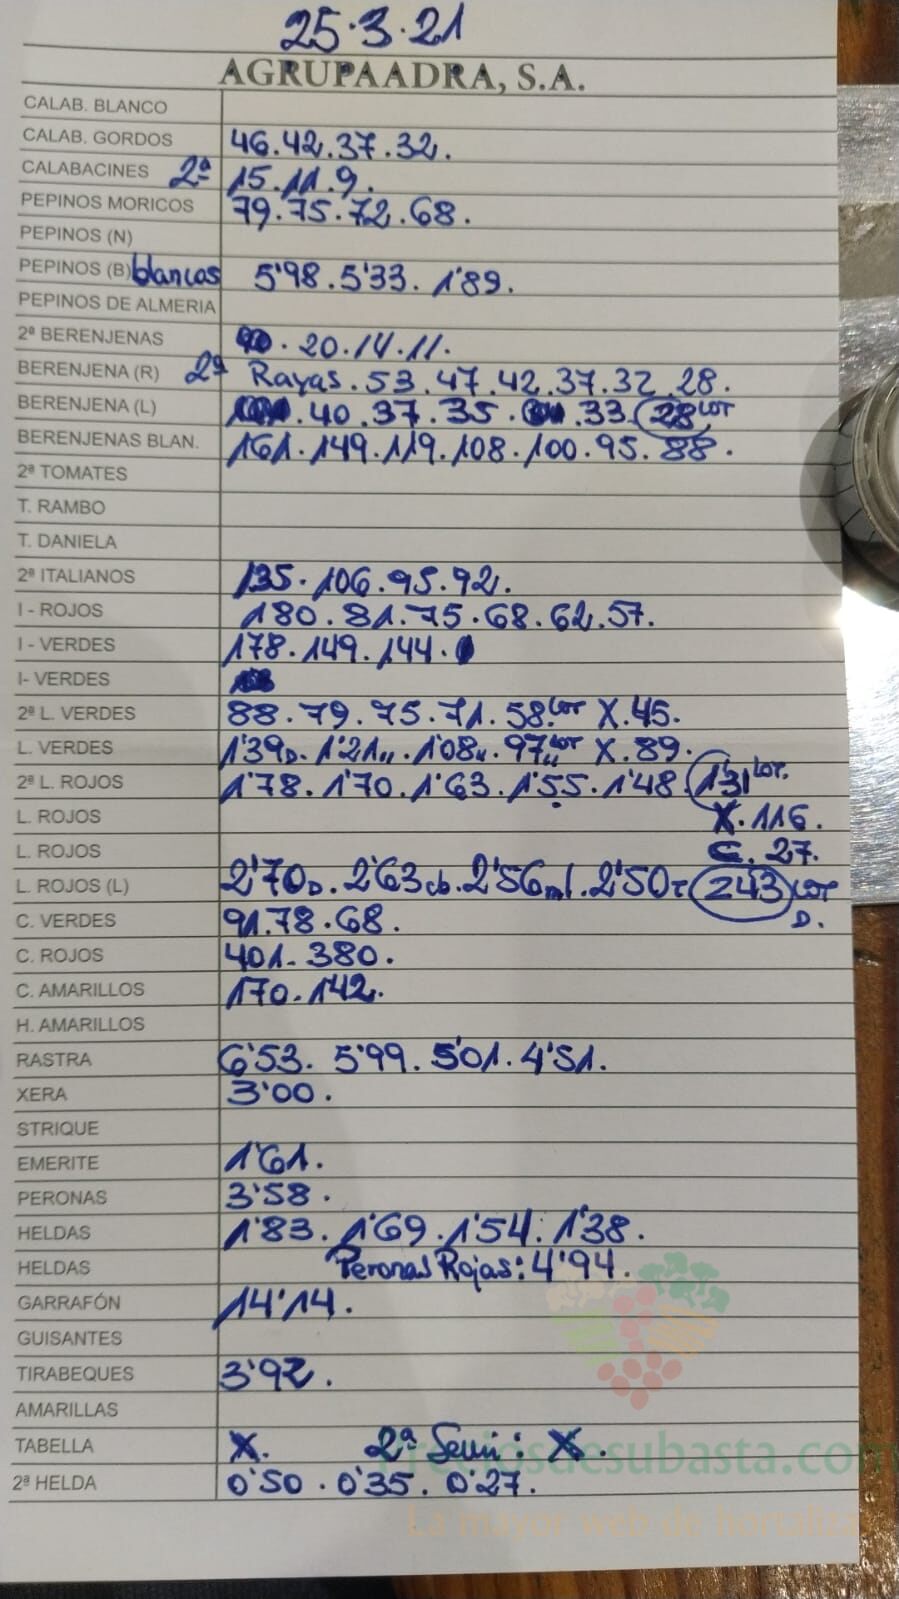 25.3.21
AGRUPAADRA, S.A.
CALAB. BLANCO
CALAB. GORDOS 46.42.37.32.
CALABACINES 2ª 15.11.9.
PEPINOS MORICOS 79.75.72.68.
PEPINOS (N)
PEPINOS (B) blancos 5'98.5'33.1'89.
PEPINOS DE ALMERIA
2ª BERENJENAS .20.14.11.
BERENJENA (R) 2ª Rayas.53.47.42.37.32.28.
BERENJENA (L) .40.37.35. .33.28 LOT
BERENJENAS BLAN. 161.149.119.108.100.95.88.
2ª TOMATES
T. RAMBO
T. DANIELA
2ª ITALIANOS 135.106.95.92.
I - ROJOS 180.81.75.68.62.57.
I - VERDES 178.149.144.
I- VERDES
2ª L. VERDES 88.79.75.71.58.LOT X.45.
L. VERDES 1'39D.1'21".1'08".97"LOT X.89.
2ª L. ROJOS 1'78.1'70.1'63.1'55.1'48.1'31 LOT.
L. ROJOS X.116.
L. ROJOS C.27.
L. ROJOS (L) 2'70D.2'63cb.2'56ml.2'50T 243 LOT
D.
C. VERDES 91.78.68.
C. ROJOS 401.380.
C. AMARILLOS 170.142.
H. AMARILLOS
RASTRA 6'53. 5'99. 5'01. 4'51.
XERA 3'00.
STRIQUE
EMERITE 1'61.
PERONAS 3'58.
HELDAS 1'83.1'69.1'54.1'38.
HELDAS Peronas Rojas: 4'94.
GARRAFÓN 14'14.
GUISANTES
TIRABEQUES 3'92.
AMARILLAS
TABELLA X. 2ª Semi: X.
Preciosdesubasta.com
2ª HELDA 0'50.0'35.0'27.
La mayor web de hortaliza